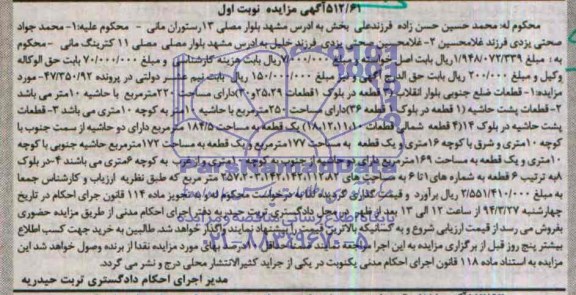 ۵۱۲/۶۱آگهی مزایده نوبت اول
محکوم له: محمد حسین حسن زاده فرزندعلی بخش به ادرس مشهد بلوار مصلی ۱۳رستوران مانی - محکوم علیه:۱-محمد جواد
صحتی یزدی فرزند غلامحسین ۲-غلامحسین یزدی فرزند خلیل به ادرس مشهد بلوار مصلی مصلی ۱۱ کترینگ مانی -محکوم
به : مبلغ ۱/۹۴۸/۰۷۲/۳۳۹ ریال بابت اصل خواسته و مبلغ ریال بابت هزینه کارشناسی و مبلغ ۷۰/۰۰۰/۰۰۰ ریال بابت حق الوکاله
وکیل و مبلغ ۲۰۰/۰۰۰ ریال بابت حق الدرج آگهی و مبلغ ۱۵۰/۰۰۰/۰۰۰ ریال بابت نیم عشر دولتی در پرونده ۴۷/۳۵۰/۹۲ - مورد
مزایده:۱-قطعات ضلع جنوبی بلوار انقلاب ( قطعه در بلوک ۱قطعات ۲۵،۲۹و۳۰)دارای مساحت ۲۲۰مترمربع با حاشیه ۱۰متر می باشد
۲-قطعات پشت حاشیه (۱ قطعه در بلوک ۱ قطعه ۳۶)دارای مساحت ۲۵۰مترمربع با حاشیه ۱۰متر به کوچه ۱۰متری می باشد ۳-قطعات
پشت حاشیه در بلوک ۱۴(۴ قطعه شمالی قطعات ۱۸،۱۲،۱۱،۱۰) یک قطعه به مساحت ۱۸۴/۵ مترمربع دارای دو حاشیه از سمت جنوب با
کوچه ۱۰متری و شرق با کوچه ۱۶متری و یک قطعه به مساحت ۱۷۷مترمربع و یک قطعه به مساحت ۱۷۲مترمربع حاشیه جنوبی با کوچه
۱۰متری و یک قطعه به مساحت ۱۶۹مترمربع دارای دو حاشیه از جنوب به کوچه ۱۰متری و از غرب به کوچه ۶متری می باشند ۴-در بلوک
۸به ترتیب ۶ قطعه به شماره های ۱تا۶ به مساحت های مربع که طبق نظریه ارزیاب و کارشناس جمعا
به مبلغ ۲/۵۵۱/۴۱۰/۰۰۰ ریال برآورد و قیمت گذاری گردیده که به درخواست محکوم له و به تجویز ماده ۱۱۴ قانون اجرای احکام در تاریخ
چهارشنبه ۹۴/۳/۲۷ از ساعت ۱۲ الی ۱۳ بعد از ظهر در محل دادگستری تربت حیدریه دفتر اجرای احکام مدنی از طریق مزایده حضوری
بفروش می رسد از قیمت ارزیابی شروع و به کسانیکه بالاترین قیمت را پیشنهاد نمایند واگذار خواهد شد. طالبین به خرید جهت کسب اطلاع
بیشتر پنج روز قبل از برگزاری مزایده به این اجرا مراجعه نمایند ضمنا حداقل بهای مورد مزایده نقدا از برنده وصول خواهد شد این
مزایده به استناد ماده ۱۱۸ قانون اجرای احکام مدنی یکنوبت در یکی از جراید کثیرالانتشار محلی درج و نشر می گردد.
مدیر اجرای احکام دادگستری تربت حیدریه